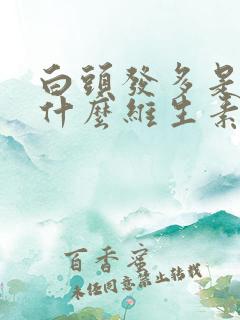 白頭發多是
什麼維生素
百香蜜
未经同意禁止转载